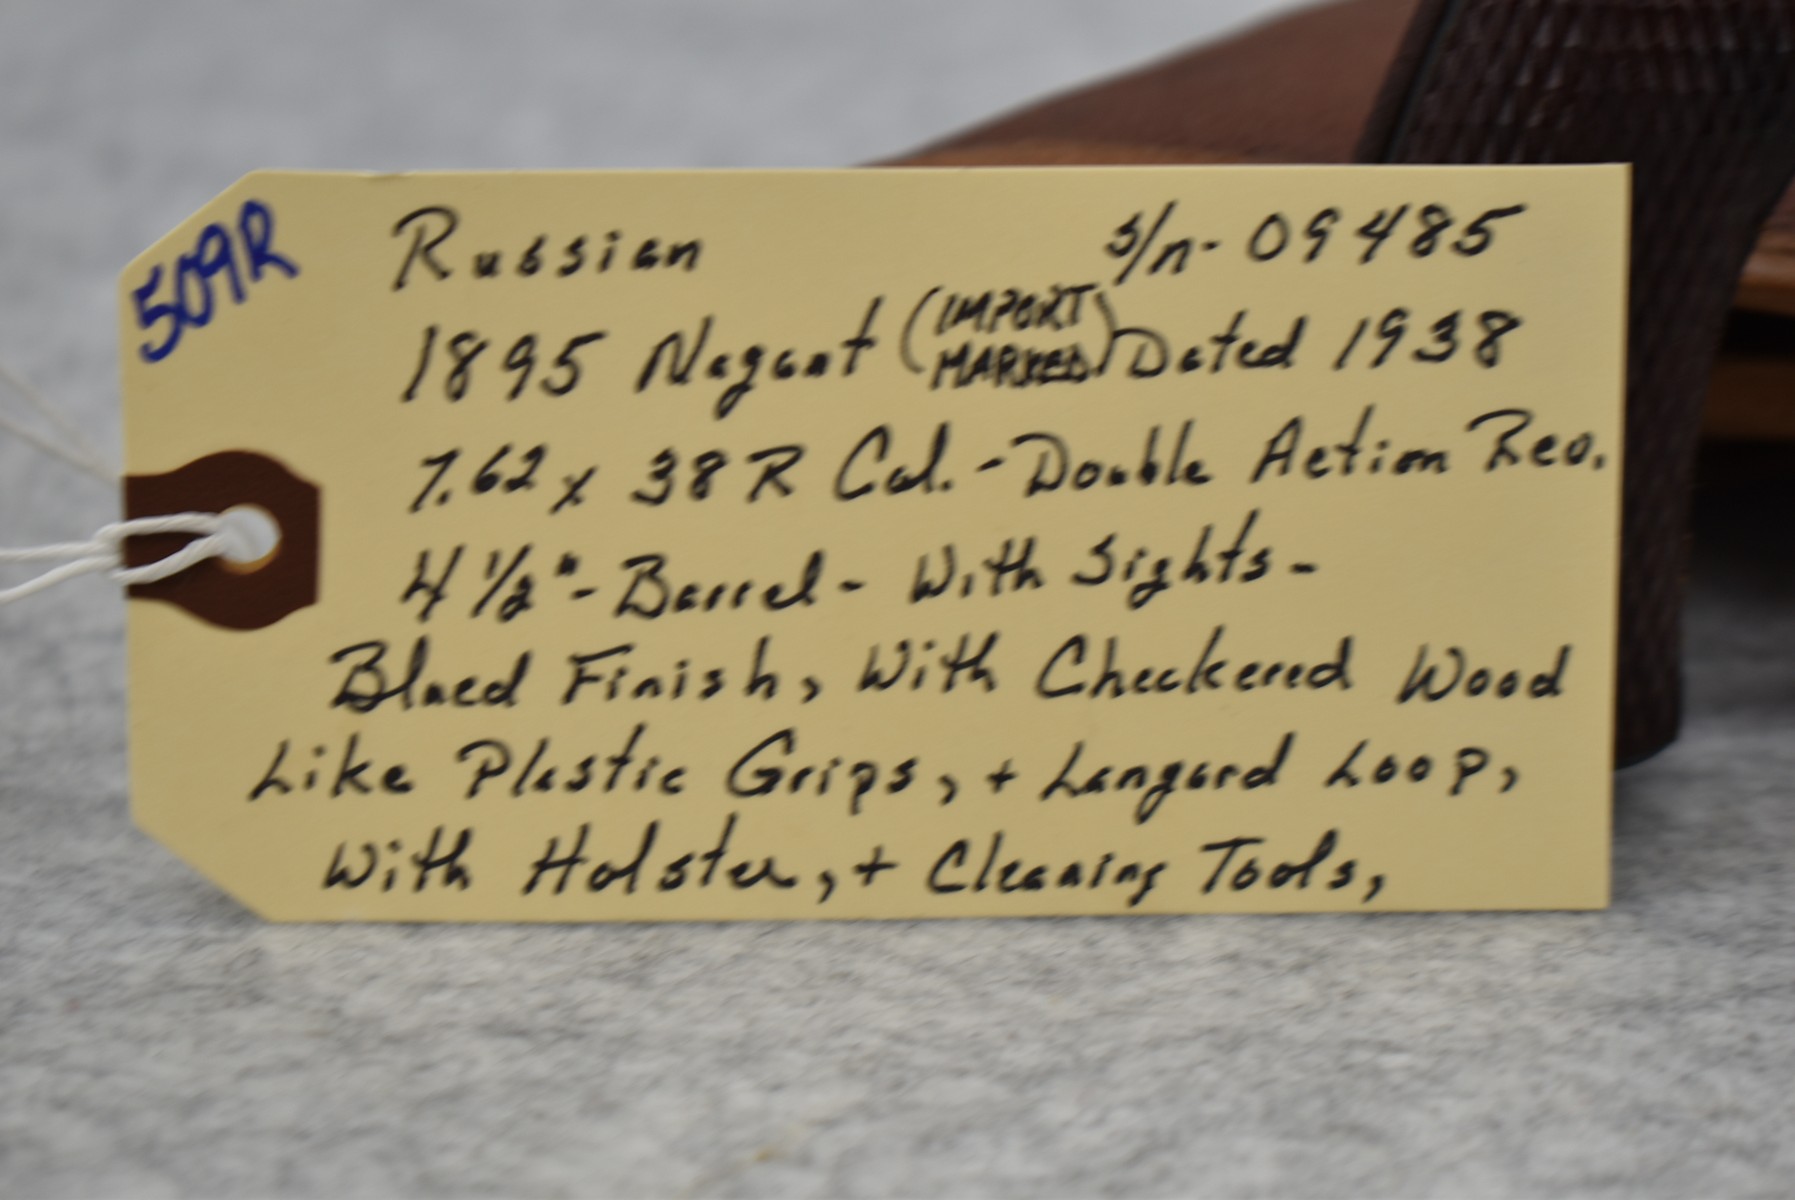 509R
Russian s/n- 09485
1895 Nagant (IMPORT MARKED) Dated 1938
7.62 x 38 R Cal. - Double Action Rev.
4 1/2" - Barrel - With Sights -
Blued Finish, With Checkered Wood
Like Plastic Grips, + Langard Loop,
With Holster, + Cleaning Tools,